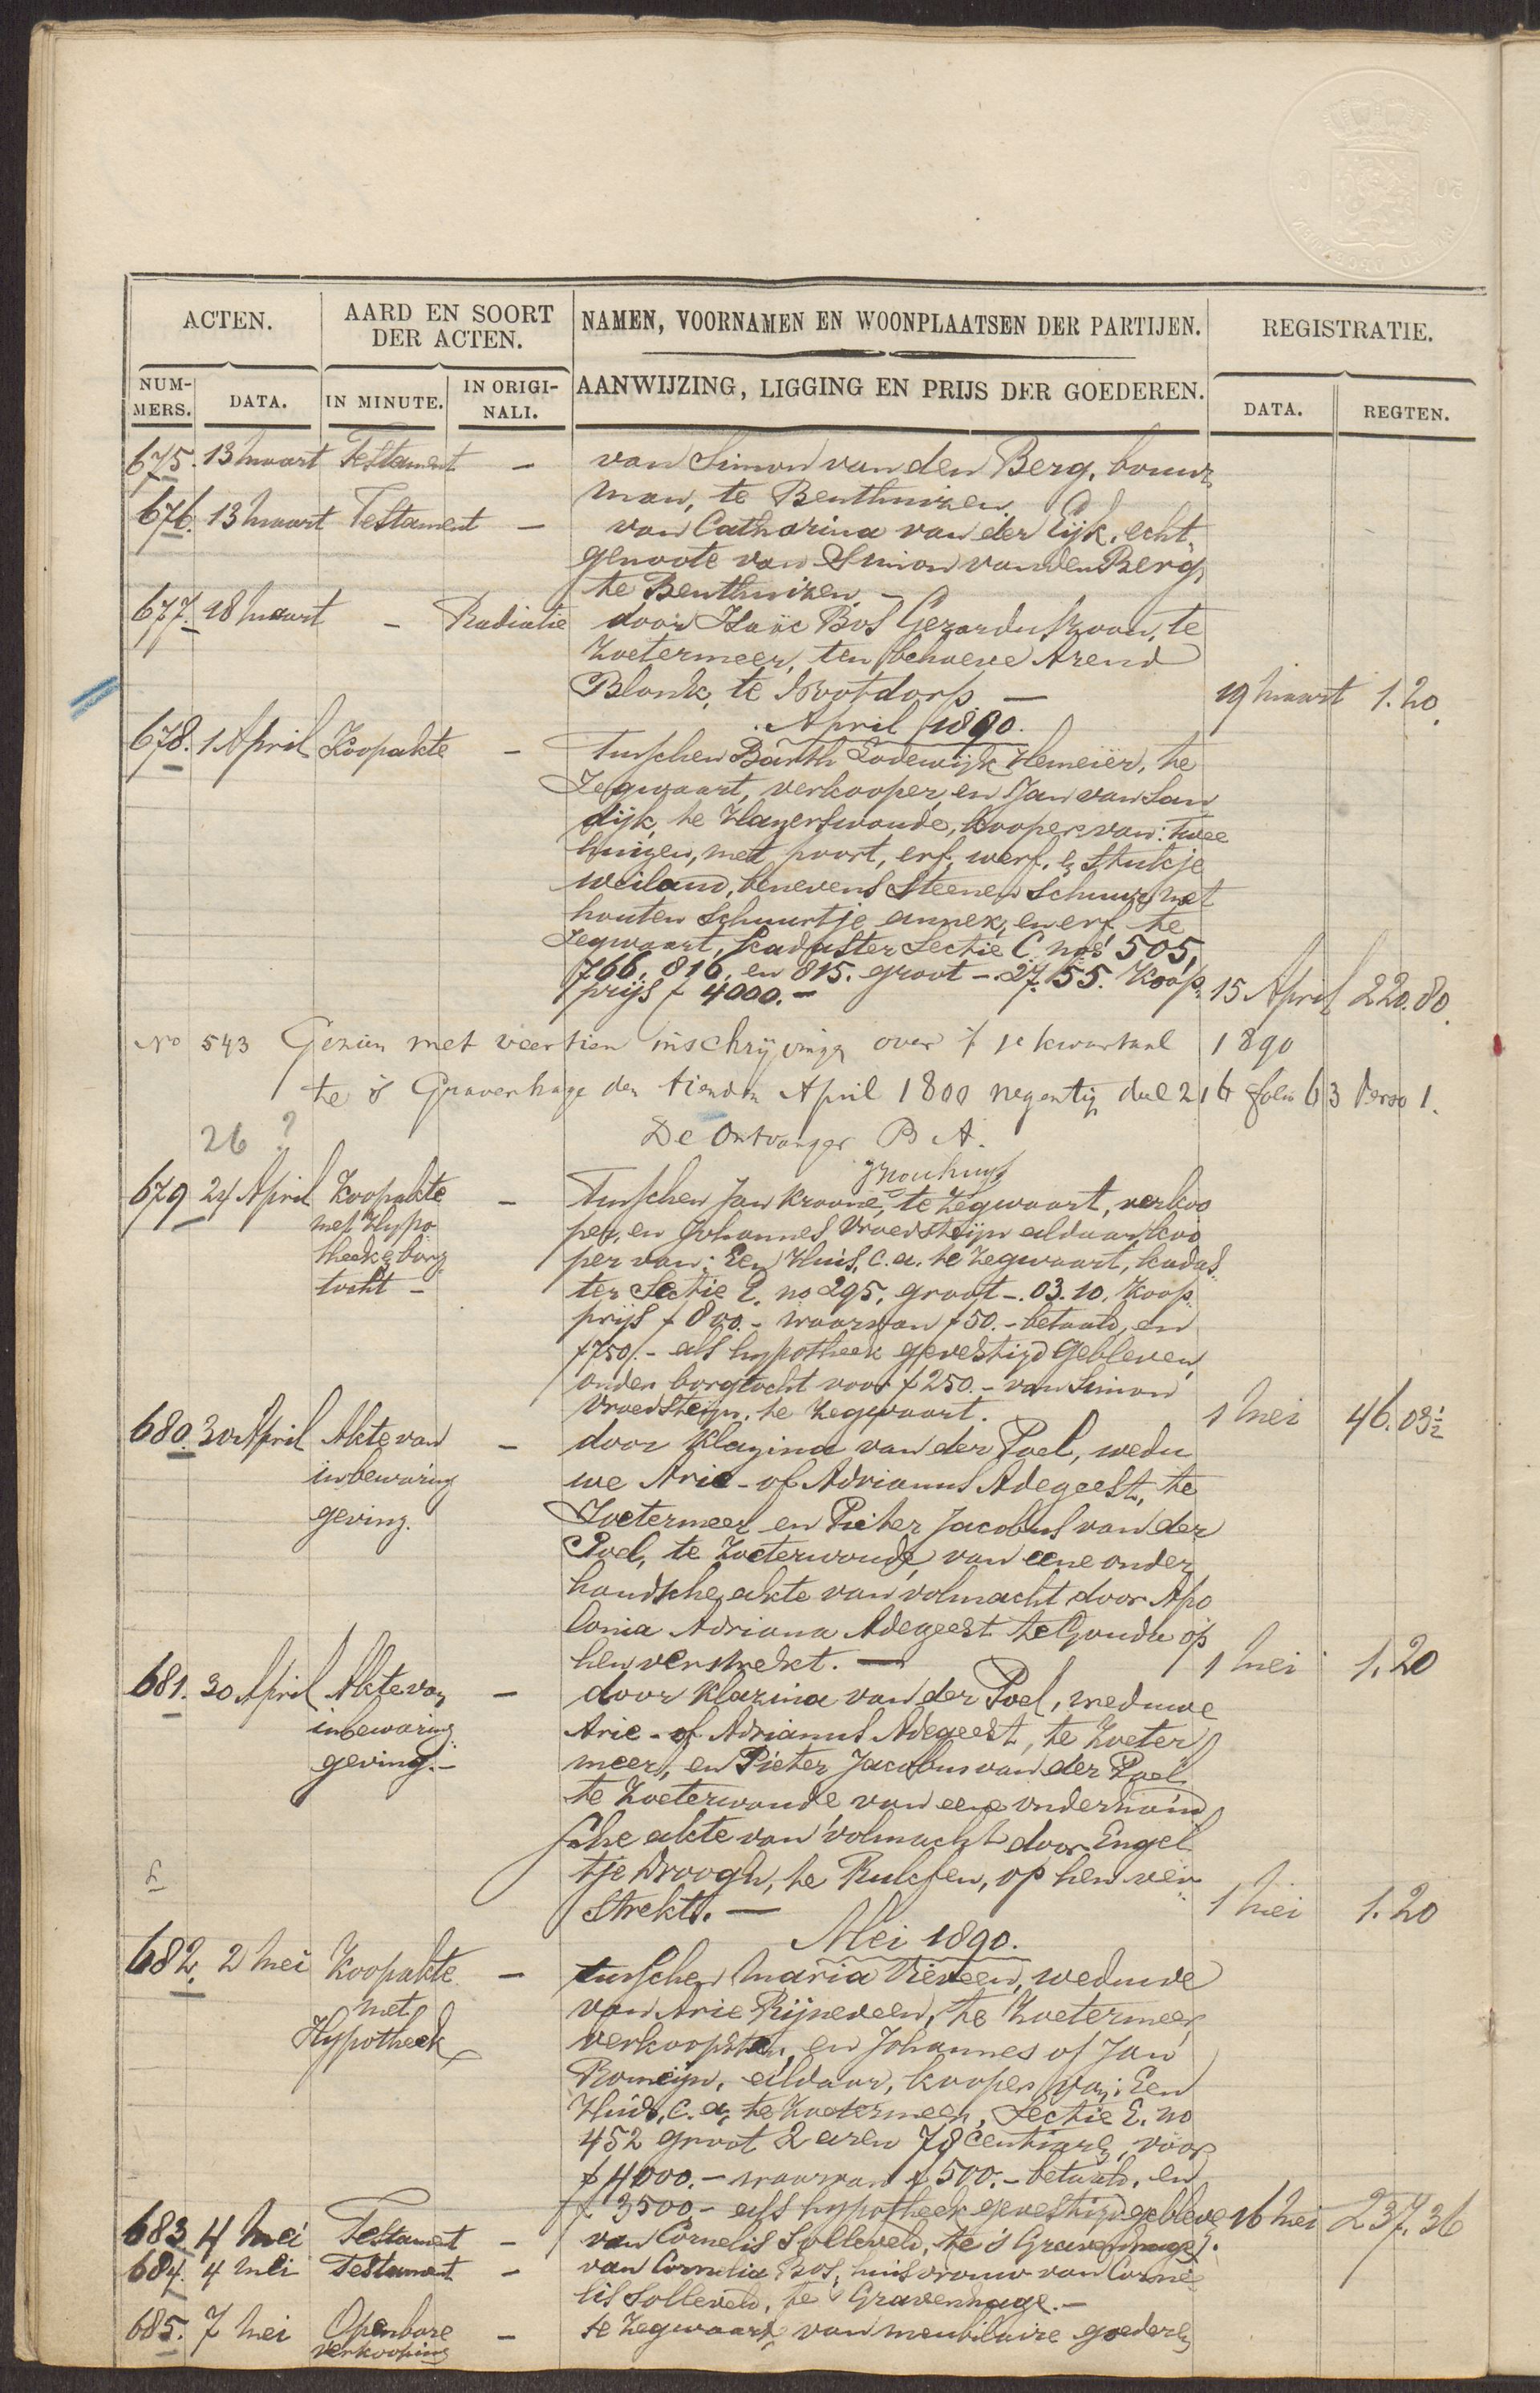 ACTEN.
AARD EN SOORT
DER ACTEN.
NAMEN, VOORNAMEN EN WOONPLAATSEN DER PARTIJEN.
REGISTRATIE.
NUM-
MERS.
DATA.
IN MINUTE.
IN ORIGI-
NALI.
AANWIJZING, LIGGING EN PRIJS DER GOEDEREN.
DATA.
REGTEN.
675. 13 Maart Testament - van Simon van den Berg, bouw
man, te Benthuizen.
676. 13 Maart Testament - van Catharina van der Eijk, echt-
genoote van Simon van den Berg,
te Benthuizen. -
677. 18 Maart - Radiatie door Isaäc Bos Gerarduszoon, te
Zoetermeer, ten behoeve Arend
Blonk, te Nootdorp - 19 Maart 1.20.
April 1890.
678. 1 April Koopakte - Tusschen Barth Lodewijk Hemeiër, te
Zegwaart, verkooper, en Jan van San
dijk, te Hazerswoude, kooper van: Twee
huizen, met poort, erf, werf, & stukje
weiland, benevens steenen schuur, met
houten schuurtje annex, en erf te
Zegwaart, kadaster Sectie C. nos 505,
766, 816, en 815. groot -. 27. 55. Koop-
prijs f 4000. - 15 April 220.80.
No 543 Gezien met veertien inschrijvingen over 't 1e kwartaal 1890
te 's Gravenhage den tienden April 1800 negentig deel 216 folio 63 Verso 1.
26 ?
De Ontvanger B A.
679 24 April Koopakte - Tusschen Jan Kroone, te Zegwaart, verkoo
met Hypo per, en Johannes Vroedsteijn aldaar, koo
theek & borg per van: Een Huis, c.a. te Zegwaart, kadas
tocht - ter Sectie E. no 295, groot -. 03. 10, Koop
prijs f 800. - waarvan f 50. - betaald, en
f 750. - als hypotheek gevestigd gebleven,
onder borgtocht voor f 250. - van Simon
Vroedsteijn, te Zegwaart. 1 Mei 46.03½
680. 30 April Akte van - door Klazina van der Poel, wedu
inbewaring we Arie - of Adrianus Adegeest, te
geving. Zoetermeer en Pieter Jacobus van der
Poel, te Zoeterwoude, van eene onder
handsche akte van volmacht door Apo
lonia Adriana Adegeest te Gouda op
hen verstrekt. - 1 Mei 1.20
681. 30 April Akte van - door Klazina van der Poel, weduwe
inbewaring Arie - of Adrianus Adegeest, te Zoeter
geving. - meer, en Pieter Jacobus van der Poel
te Zoeterwoude van eene onderhand
sche akte van volmacht door Engel
tje Droogh, te Rucfen, op hen ver
strekt. - 1 Mei 1.20
Mei 1890.
682. 2 Mei Koopakte - tusschen Maria Vieveen, weduwe
met van Arie Rijneveen, te Zoetermeer,
Hypotheek verkoopster, en Johannes of Jan
Romeijn, aldaar, kooper van: Een
Huis, c.a. te Zoetermeer, Sectie E. no
452 groot 2 aren 78 centiare, voor
f 4000. - waarvan f 500. - betaald, en
f 3500. - als hypotheek gevestigd gebleve 16 Mei 237.36
683. 4 Mei Testament - van Cornelis Solleveld, te 's Gravenhage.
684. 4 Mei Testament - van Cornelia Bos, huisvrouw van Corne
lis Solleveld, te 's Gravenhage. -
685. 7 Mei Openbare - te Zegwaart, van meubilaire goederen
verkooping